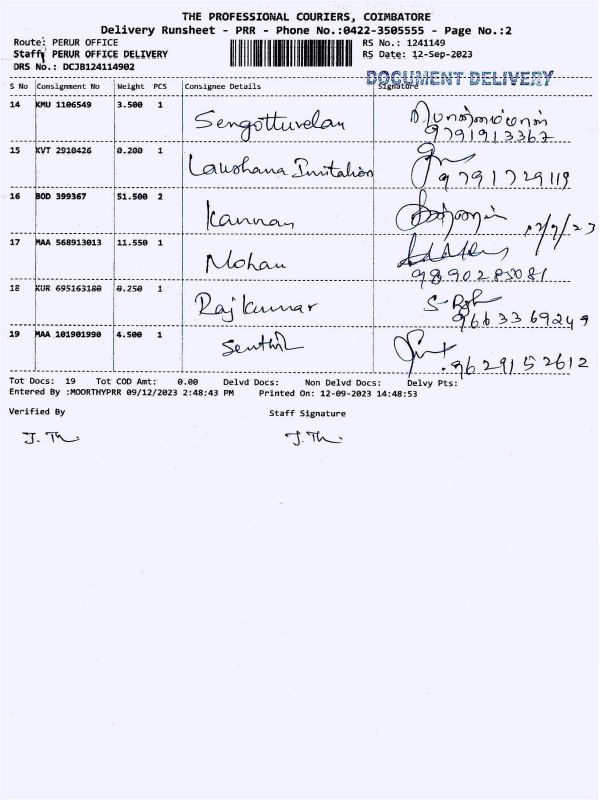 THE PROFESSIONAL COURIERS, COIMBATORE
Delivery Runsheet - PRR - Phone No.:0422-3505555 - Page No.:2
Route: PERUR OFFICE RS No.: 1241149
Staff: PERUR OFFICE DELIVERY RS Date: 12-Sep-2023
DRS No.: DCJB124114902
DOCUMENT DELIVERY
S No Consignment No Weight PCS Consignee Details Signature
14 KMU 1106549 3.500 1 Sengottuvelan
9791913367
15 KVT 2910426 0.200 1 Imitation
9791729119
16 BOD 399367 51.500 2 Kannan
17 MAA 568913013 11.550 1 Mohan
18 KUR 695163180 0.250 1 Rajkumar
9663369249
19 MAA 101901990 4.500 1 Senthil
9629152612
Tot Docs: 19 Tot COD Amt: 0.00 Delvd Docs: Non Delvd Docs: Delvy Pts:
Entered By :MOORTHYPRR 09/12/2023 2:48:43 PM Printed On: 12-09-2023 14:48:53
Verified By Staff Signature